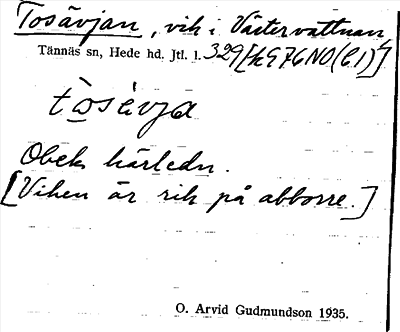 Tosävjan, vik i Västervattnan,
Tännäs sn, Hede hd. Jtl. l. 329[k976NO(C1)]
tosävja
Obek härledn.
[Viken är rik på abborre.]
O. Arvid Gudmundson 1935.